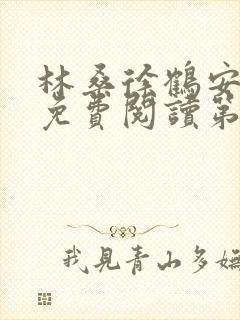 林桑徐鶴安
免費閱讀第
我見青山多嫵